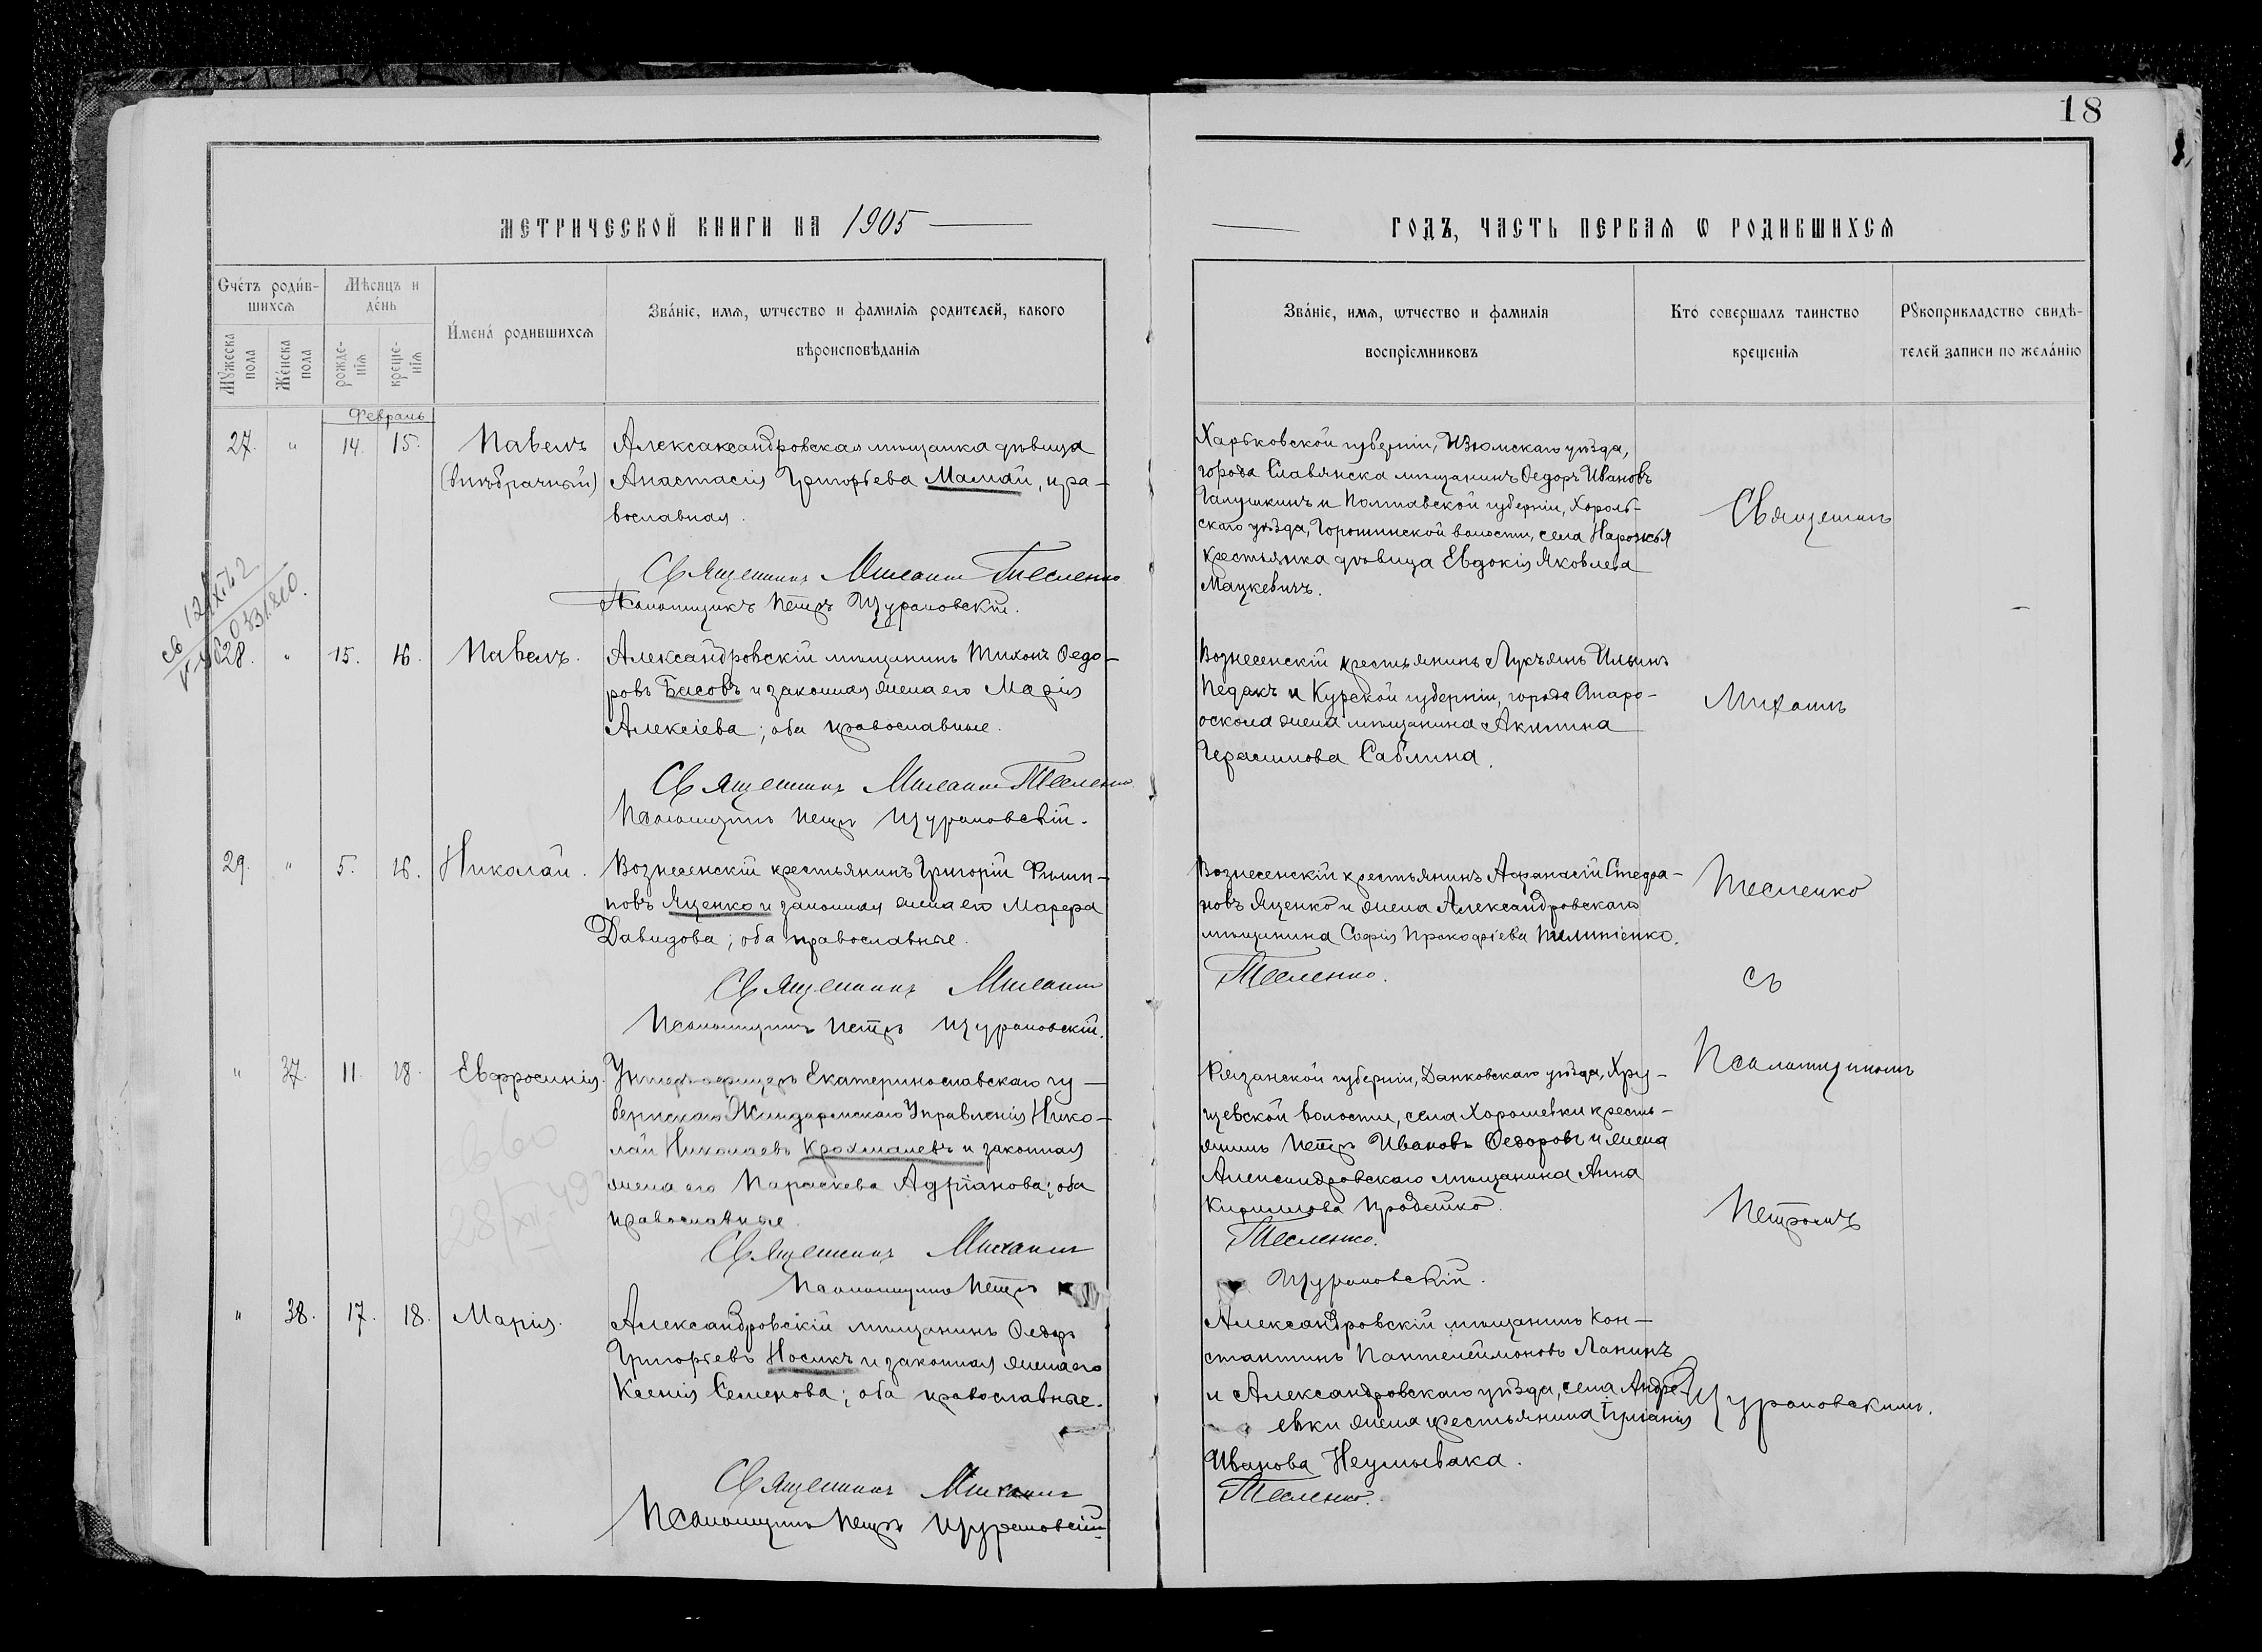 18
МЕТРИЧЕСКОЙ КНИГИ НА 1905
ГОДЪ, ЧАСТЬ ПЕРВАЯ Ѡ РОДИВШИХСЯ
Счётъ родив-
шихся
Мужеска пола
Женска пола
Мѣсяцъ и
день
рожде-
нія
креще-
нія
Имена родившихся
Званіе, имя, ѿтчество и фамилія родителей, какого
вѣроисповѣданія
Званіе, имя, ѿтчество и фамилія
воспріемниковъ
Кто совершалъ таинство
крещенія
Рукоприкладство свидѣ-
телей записи по желанію
Февраль
27. " 14. 15. Павелъ
(внѣбрачный)
Алексаксандровская мѣщанка дѣвица
Анастасія Григорьева Мамай, пра-
вославная.
Священникъ Михаилъ Тесленко
Псаломщикъ Петръ Щурановскій.
Харьковской губерніи, Изюмскаго уѣзда,
города Славянска мѣщанинъ Ѳедоръ Ивановъ
Галушкинъ и Полтавской губерніи, Хороль-
скаго уѣзда, Горошинской волости, села
крестьянка дѣвица Евдокія Яковлева
Мацкевичъ.
Священникъ
28. " 15. 16. Павелъ.
Александровскій мѣщанинъ Тихонъ Ѳедо-
ровъ Басовъ и законная жена его Марія
Алексіева; оба православные.
Священникъ Михаилъ Тесленко
Псаломщикъ Петръ Щурановскій.
Вознесенскій крестьянинъ Лукъянъ Ильинъ
Педакъ и Курской губерніи, города Старо-
оскола жена мѣщанина Акилина
Герасимова Саблина.
Михаилъ
29. " 5. 16. Николай.
Вознесенскій крестьянинъ Григорій Филип-
повъ Яценко и законная жена его Марфа
Давидова; оба православные.
Священникъ Михаилъ
Псаломщикъ Петръ Щурановскій.
Вознесенскій крестьянинъ Афанасій Стефа-
новъ Яценко и жена Александровскаго
мѣщанина Софія Прокофіева Пилипенко.
Тесленко.
Тесленко
съ
" 37. 11. 18. Евфросинія.
Унтеръ-офицеръ Екатеринославскаго гу-
бернскаго Жандармскаго Управленія Нико-
лай Николаевъ Крохмалевъ и законная
жена его Параскева Адріанова; оба
православные.
Священникъ Михаилъ
Псаломщикъ Петръ
Рязанской губерніи, Данковскаго уѣзда, Хру-
щевской волости, села Хорошевки кресть-
янинъ Петръ Ивановъ Ѳедоровъ и жена
Александровскаго мѣщанина Анна
Кириллова
Тесленко.
Щурановскій.
Псаломщикомъ
Петромъ
" 38. 17. 18. Марія.
Александровскій мѣщанинъ Ѳедоръ
Григорьевъ Носикъ и законная жена его
Ксенія Семенова; оба православные.
Священникъ Михаилъ
Псаломщикъ Петръ Щурановскій
Александровскій мѣщанинъ Кон-
стантинъ Пантелеймоновъ Ланинъ
и Александровскаго уѣзда, села Андре-
евки жена крестьянина Іуліанія
Иванова Неумывака.
Тесленко.
Щурановскимъ.